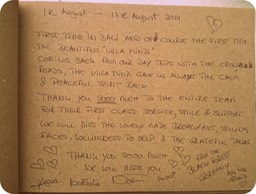 1st August --- 13th August 2014
FIRST TIME IN BALI AND OF COURSE THE FIRST TIME
THE BEAUTIFUL "VILLA
COMING BACK FROM OUR DAY TRIPS WITH THE CROWDED
ROADS, THE VILLA GAVE US ALWAYS THE CALM
& PEACEFUL SPIRIT BACK
THANK YOU SOOO MUCH TO THE ENTIRE TEAM
FOR THEIR FIRST CLASS SERVICE, SMILE & SUPPORT
WE WILL MISS THE LOVELY MADE BREAKFAST, SMILING
FACES, WILLINGNESS TO HELP & THE GRATEFUL TALKS
THANK YOU SOOO MUCH
WE WILL MISS YOU
FROM THE
BLACK FOREST
GERMANY